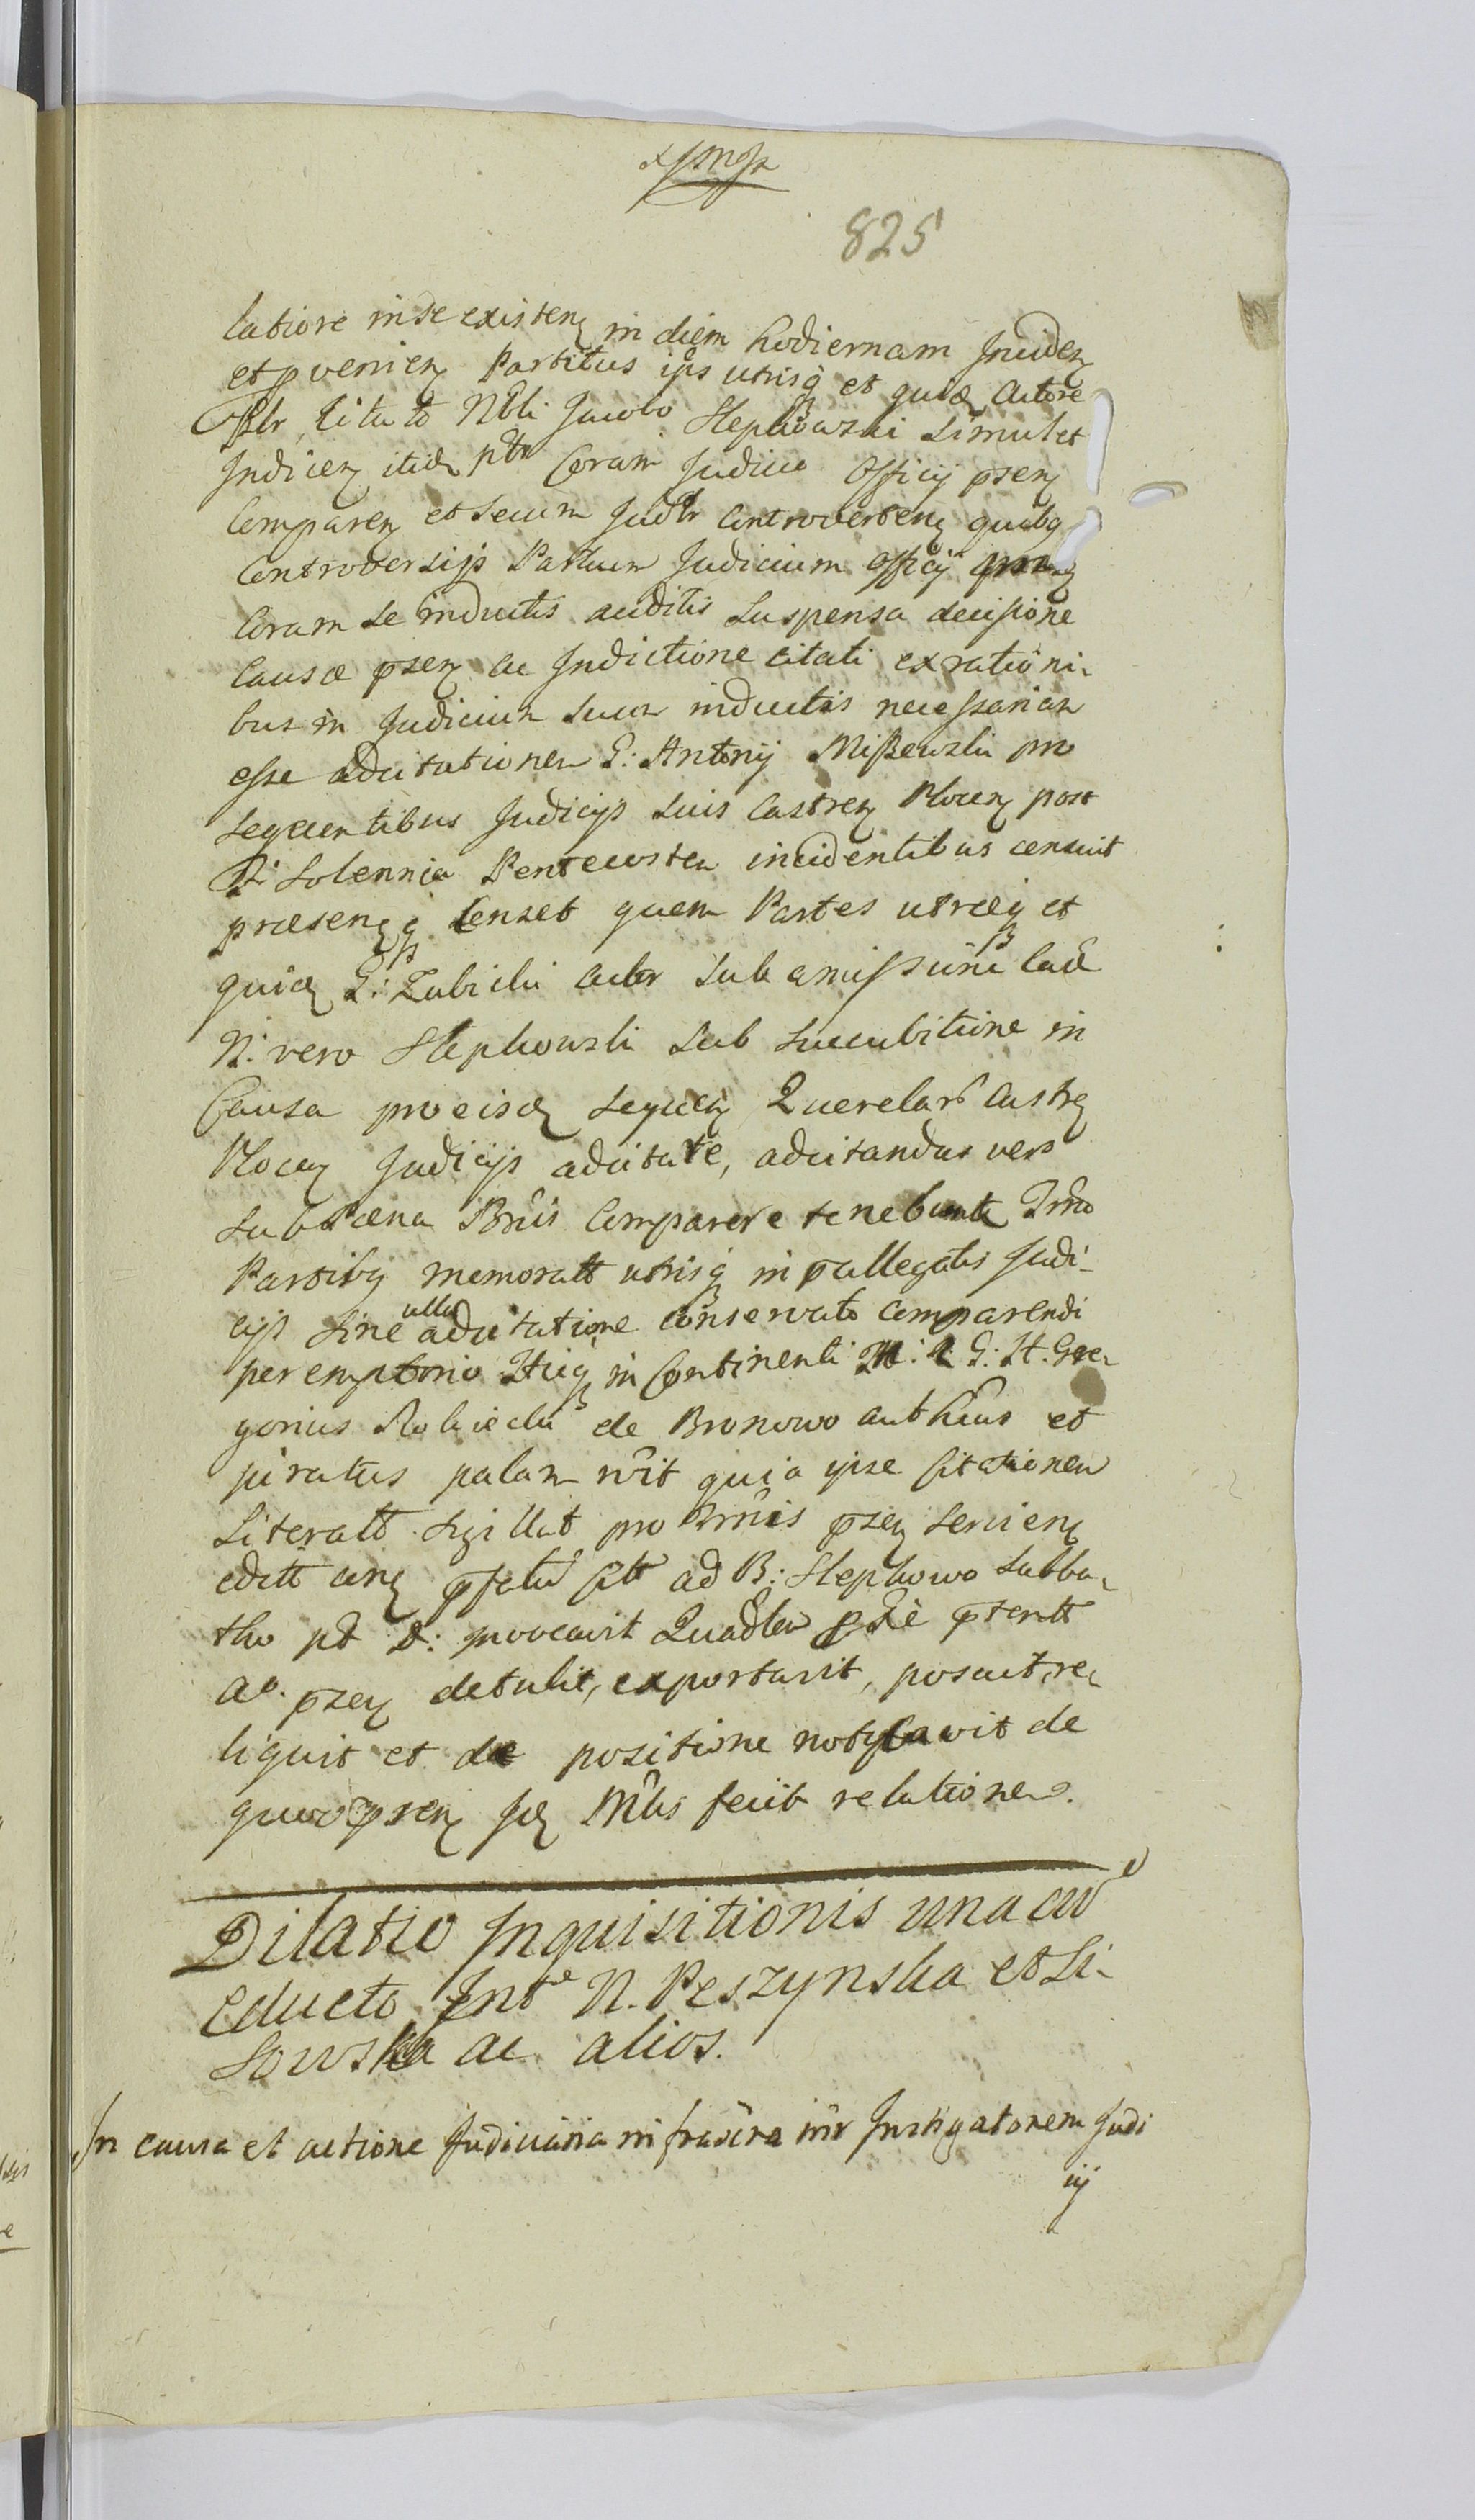 825
latiore inse existen in diem hodiernam Inciden
et pvenien Partibus ips utrisq et quid Actore
Oblr Citato Nbli Jacobo Slepkowski simul et
Indicen itid ptr Coram Judicio Officij psen
Comparen et secum Judlr Controverten quibq
Controversijs Partium Judicium Officij psen
Coram se inductis auditis suspensa decissione
Causæ psen ac Indictione citati ex rationi-
bus in Judicium suum inductis necessariam
esse adcitationem G: Antonij Miszewski pro
sequentibus Judicijs suis Castren Plocen post
S: Solennia Pentecosten incidentibus censuit
præsenq Censet quem Partes utræq et
quid G: Zabicki Actor sub amissione Cae
N: vero Slepkowski sub succubitione in
Causa pro eisd sequen Querelar Castren
Plocen Judicijs adcitare, adcitandus vero
sub Pæna Bnis Comparere tenebunt Trno
Partibq memoratt utrisq in pallegatis Judi-
cijs sine ulla adcitatione conservato comparendi
peremptorio Itiq in Continenti M: G: H. Gre-
gorius Rokicki de Bronowo authcus et
juratus palam rcit quia ipse Citationem
Literatt sigillat pro Trnis psen servien
editt prfatu Citt ad B: Slepkowo Sabba-
tho pt D: provocavit Quadlem pxie ptentt
Ao. psen detulit, exportavit, posuit, re-
liquit et de positione notificavit de
quo psen Jd Mlis fecit relationem.
Dilatio Inquisitionis una cum
educto Inte N. Peszynska et Li-
sowska ac alios.
In causa et actione Judiciaria infrascra intr Instigatorem Judi
iij